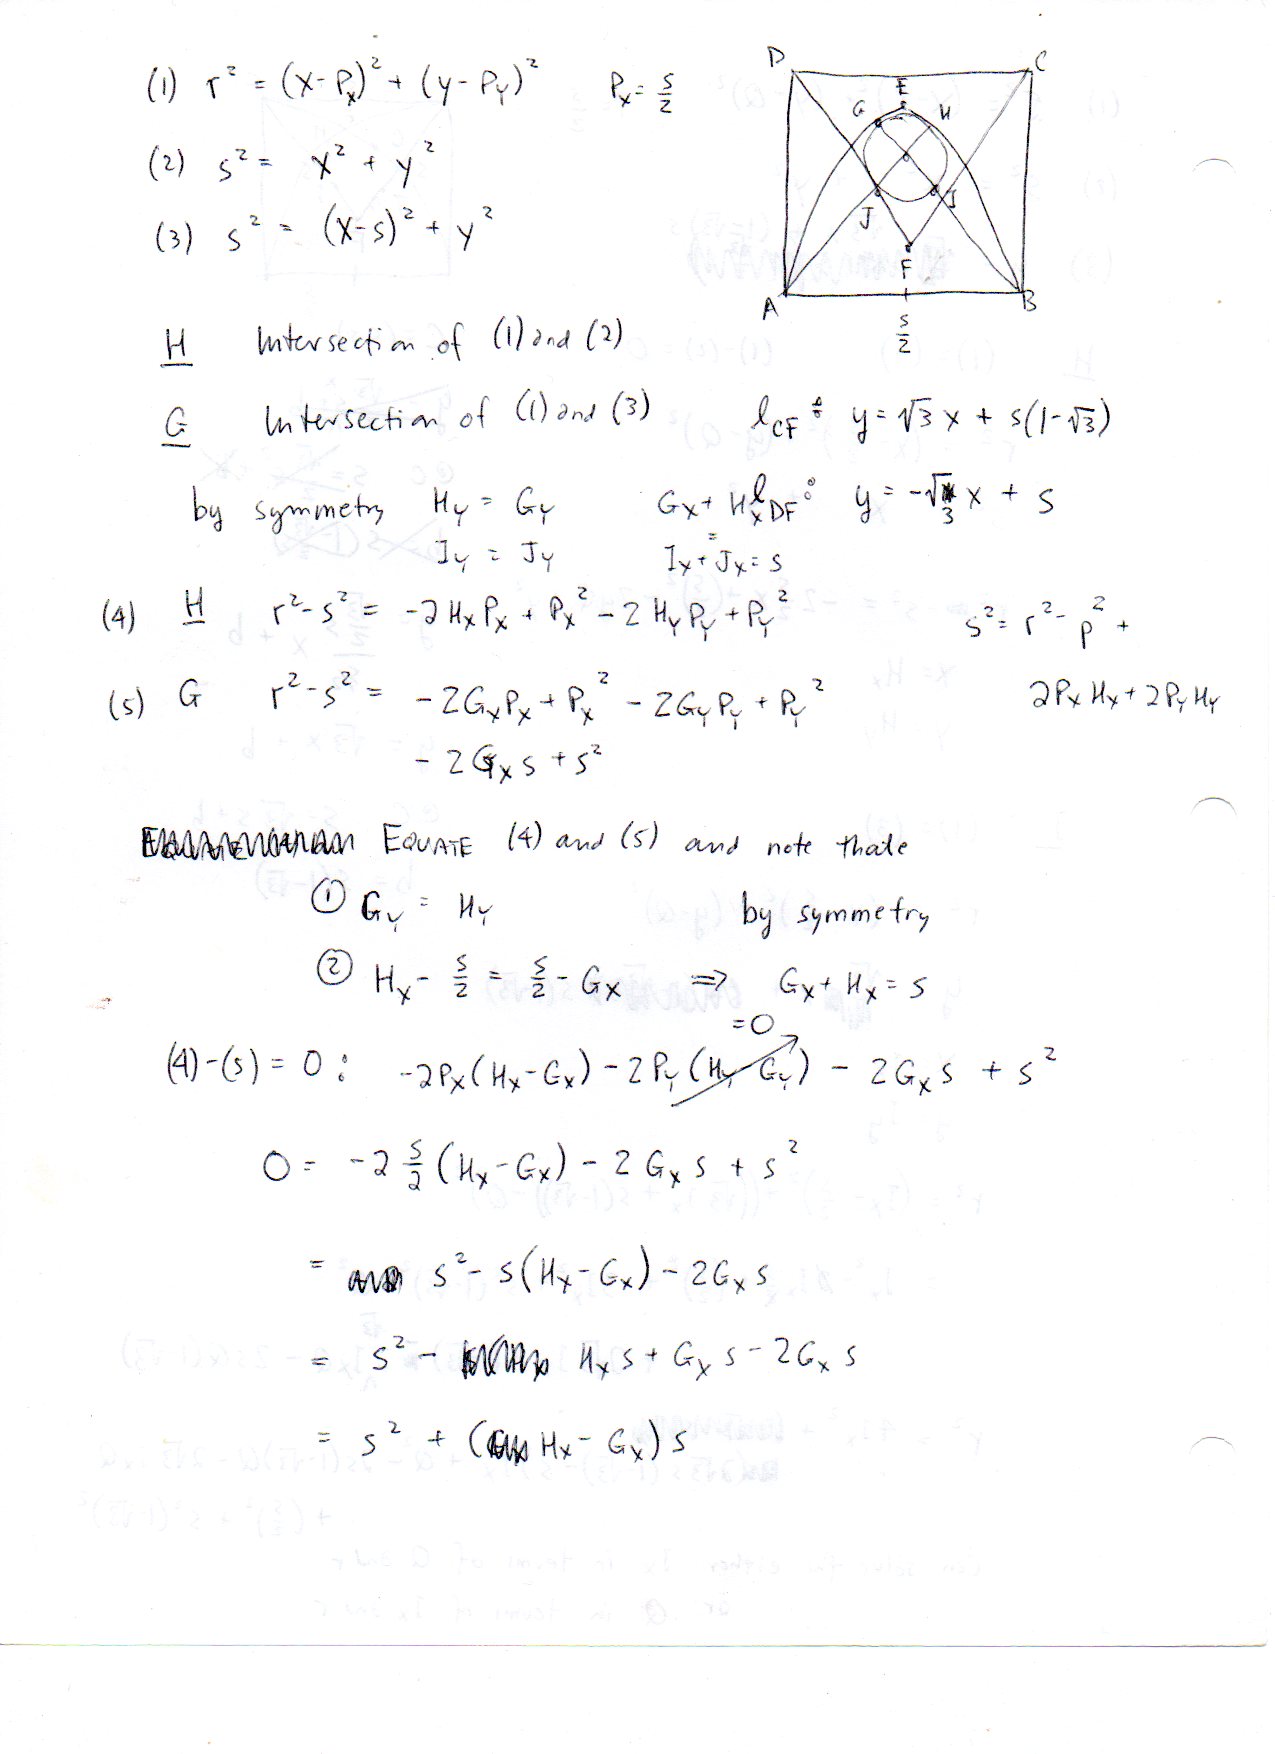 (1) r² = (x-Px)² + (y-Py)² Px = s/2
(2) s² = x² + y²
(3) s² = (x-s)² + y²
D C
E
G H
J I
F
A B
s/2
H Intersection of (1) and (2)
G Intersection of (1) and (3) lCF : y = √3 x + s(1-√3)
by symmetry Hy = Gy Gx + Hx lDF : y = -√3 x + s
=
Iy = Jy Ix + Jx = s
(4) H r² - s² = -2HxPx + Px² - 2HyPy + Py² s² = r² - p² +
(5) G r² - s² = -2GxPx + Px² - 2GyPy + Py² 2PxHx + 2PyHy
- 2Gx s + s²
EQUATE (4) and (5) and note that
① Gy = Hy by symmetry
② Hx - s/2 = s/2 - Gx ⇒ Gx + Hx = s
=0
(4)-(5) = 0 : -2Px(Hx-Gx) - 2Py(Hy-Gy) - 2Gx s + s²
0 = -2 s/2 (Hx-Gx) - 2Gx s + s²
= s² - s(Hx-Gx) - 2Gx s
= s² - Hx s + Gx s - 2Gx s
= s² + (Hx - Gx)s